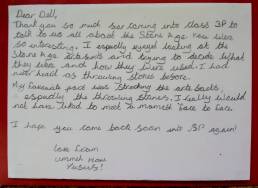 Dear Dall,
Thank you so much for coming into class 3P to
talk to us all about the Stone Age. You were
so interesting. I espially enjoyed looking at the
Stone Age artefacts and trying to decide what
they were and how they were used. I had
never heard of throwing stones before.
My favourite part was touching the artefacts
espially the throwing stones. I really would
not have liked to meet a mammoth face to face.
I hope you come back soon into 3P again!
Love from